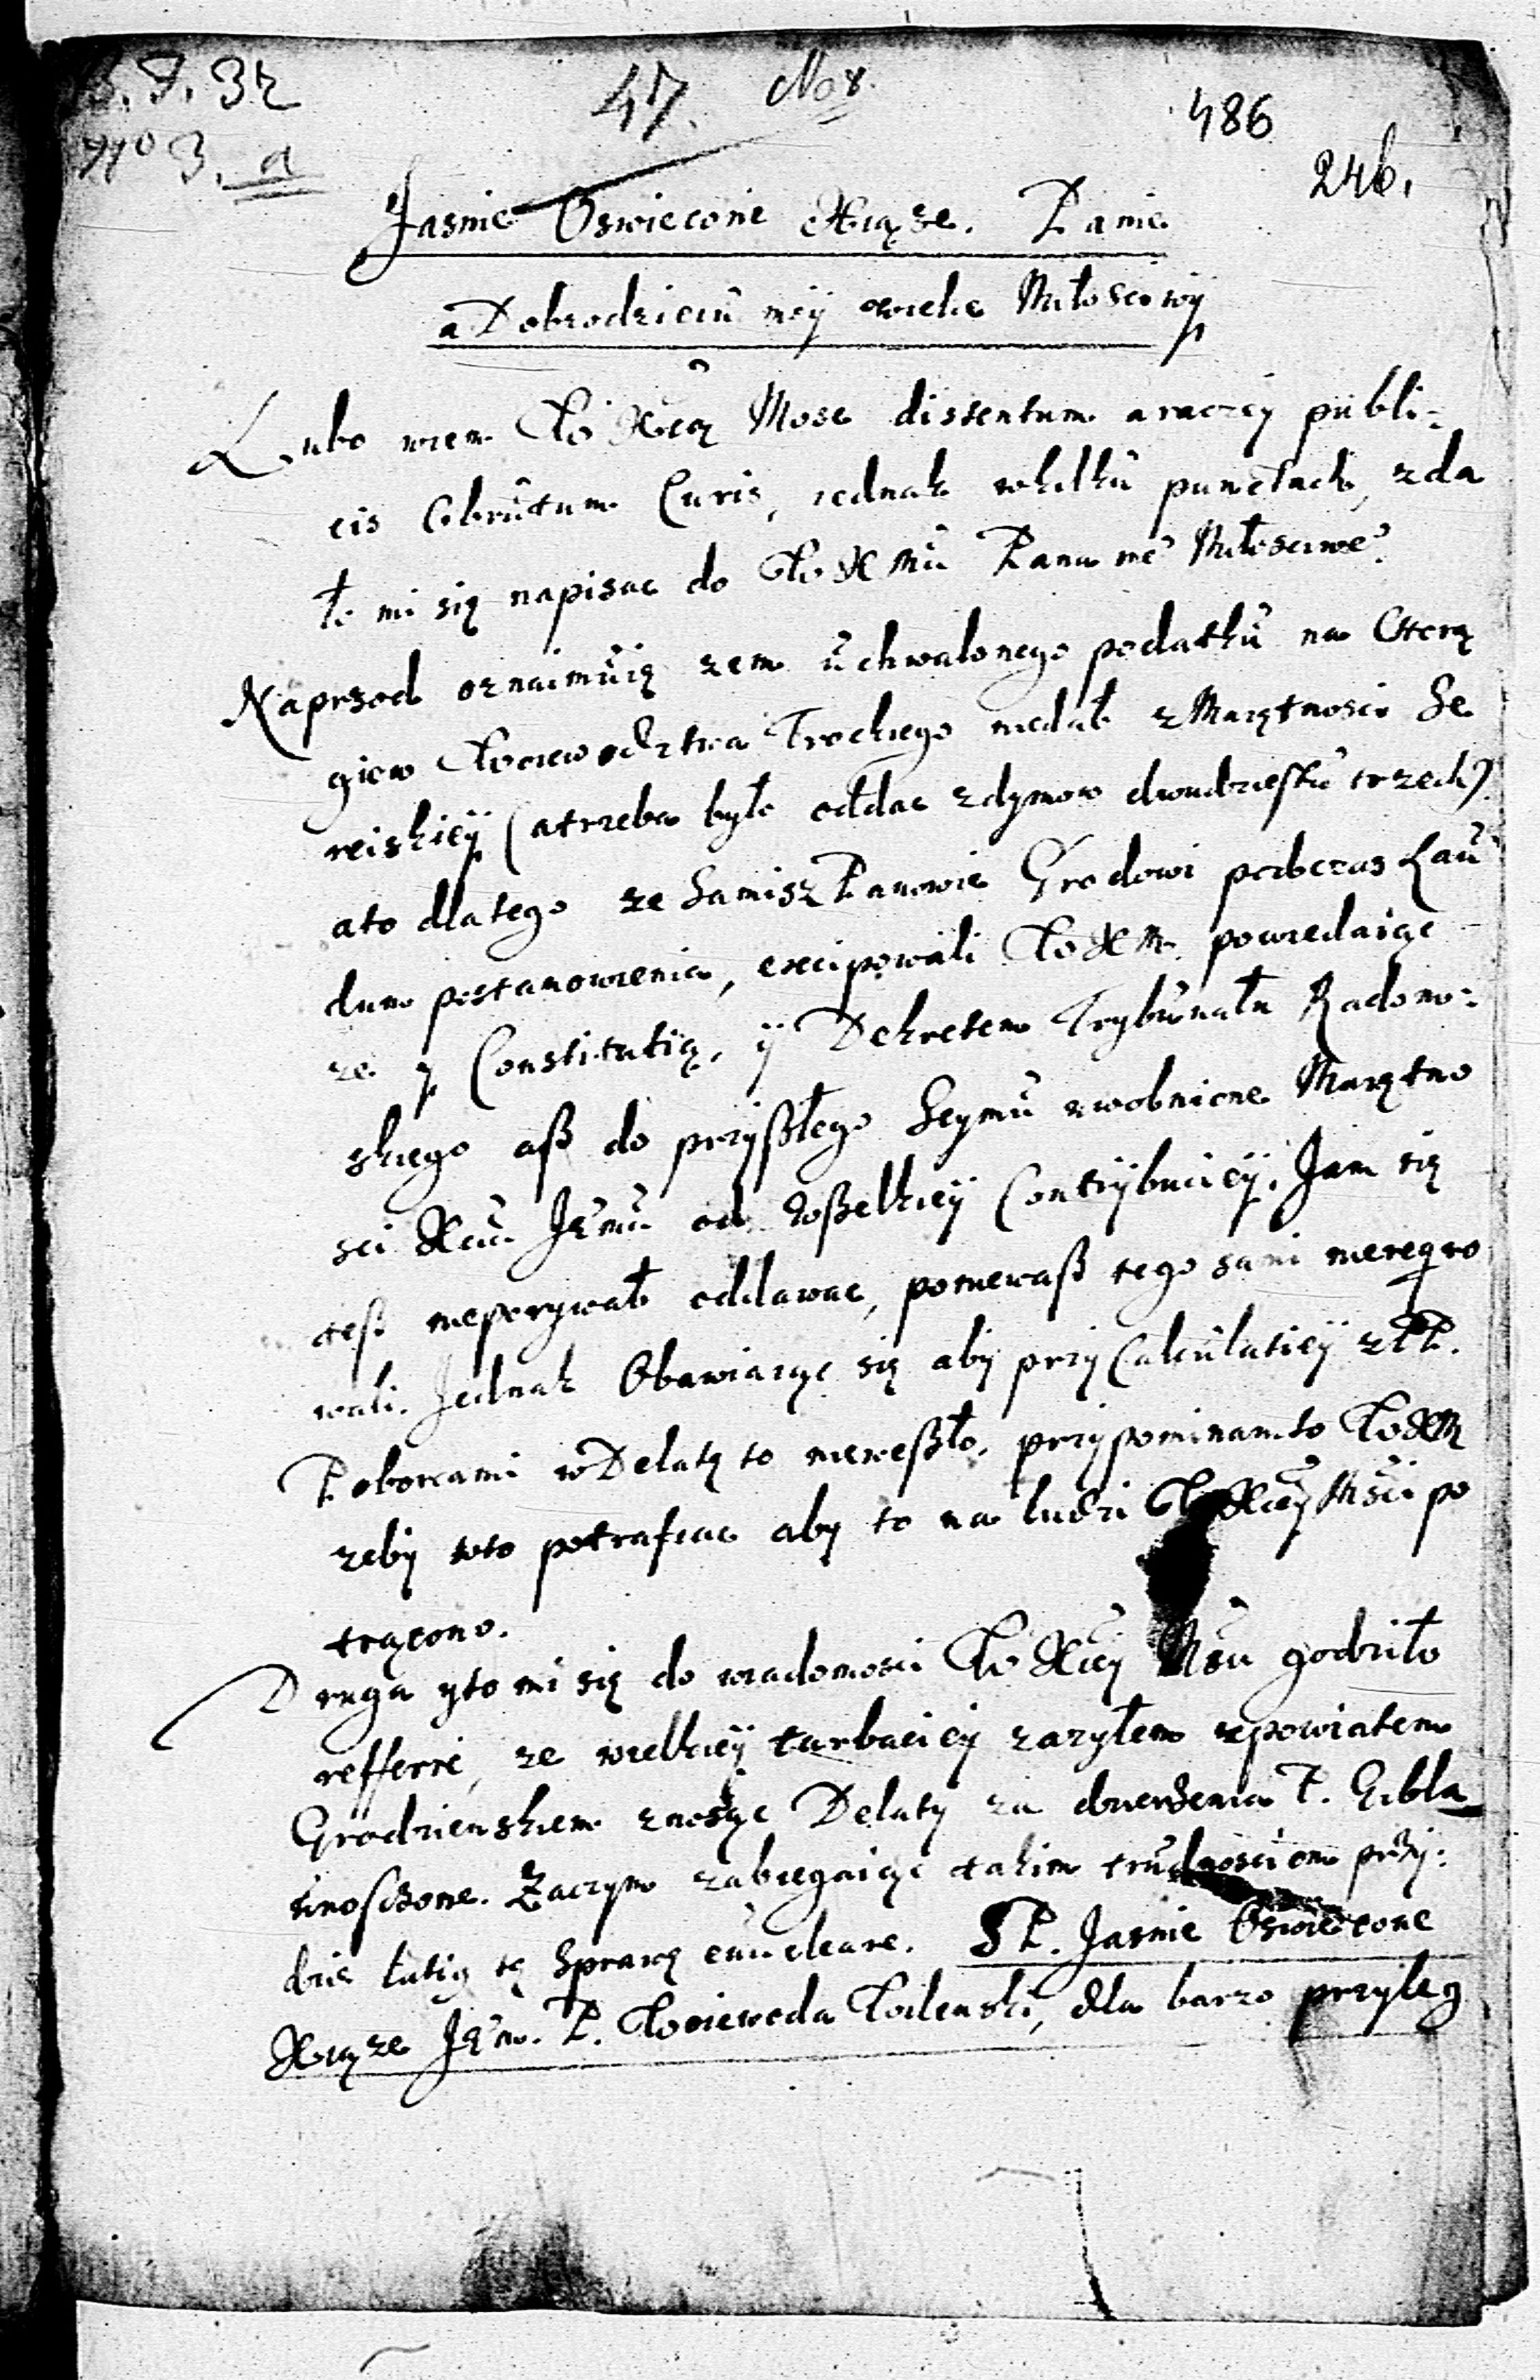 B. J. 32
47. No 8.
486
No 3. a
246.
Jasnie Oswiecone Xiąze. Panie
a Dobrodzieiu moy wielce Miłosciwy
Lubo wiem Wo Xcą Mosc distentum a raczey publi-
cis Obrutum Curis, iednak wkilku punctach, zda
ło mi się napisac do Wo X Mci Pana mego Miłosciwego.
Naprzod oznaimuię zem uchwalonego podatku na Cterą
giew Woiewodztwa Trockiego niedał z Maiętnosci Se
reiskiey (a trzeba było oddac z dymow dwudziestu trzech)
a to dlatego ze Samisz Panowie Grodowi podczas Lau
dum postanowienia, excipowali Wo X M. powiedaiąc
ze y Constitutią, y Dekretem Trybunału Radom-
skiego asz do przyszłego Seymu zwolnione Maiętno
sci Xcia Jego Mci od wszelkiey Contrybuciey. Jam się
tesz nieporywał oddawac, poniewasz tego sami nierequiro
wali. Jednak Obawiaiąc się aby przy Calculatiey z PP.
Poborcami w Delatę to nieweszło, przypominam to Wo X M
zeby wto potrafiac aby to na ludzi Wo Xcey Msci po
trącono.
Druga yto mi się do wiadomosci Wo Xcey Msci godziło
refferre, ze wielkiey turbaciey zazyłem z powiatem
Grodzienskiem znosząc Delaty za dzierzenia P. Gibla
wnoszone. Zaczym zabiegaiąc takim trudnosciom przy-
dzie łatię tę Sprawę enucleare. S P. Jasnie Oswiecone
Xiąze Jego M. P. Woiewoda Wilenski, dla barzo przyleg